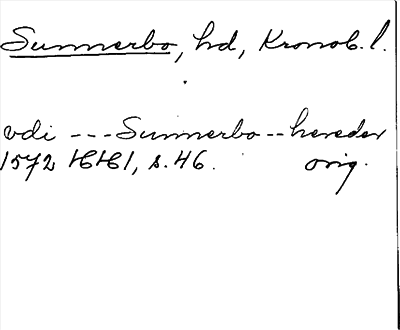 Sunnerbo, hd, Kronob. l.
vdi --- Sunnerbo -- hereder
1572 HH1, s. 46. orig.